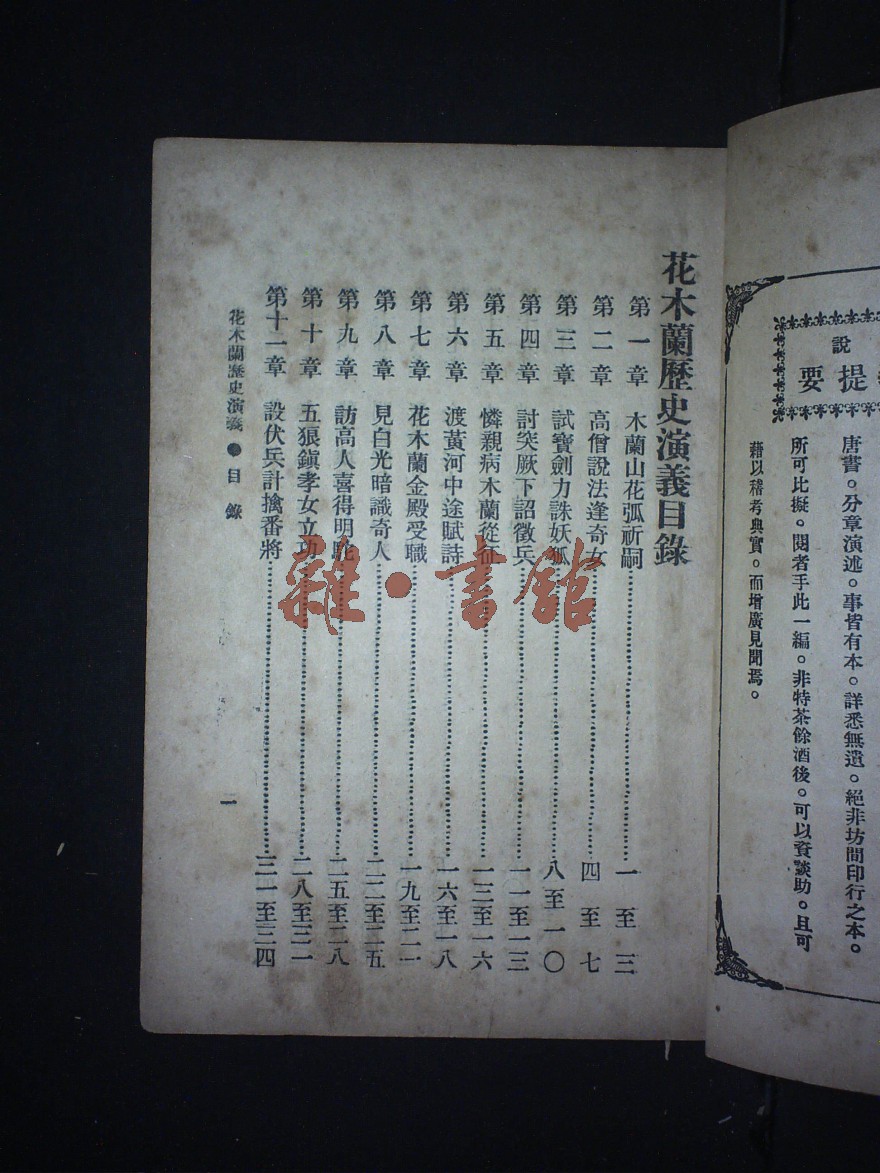 說
提要
唐書。分章演述。事皆有本。詳悉無遺。絕非坊間印行之本。
所可比擬。閱者手此一編。非特茶餘酒後。可以資談助。且可
藉以稽考典實。而增廣見聞焉。
花木蘭歷史演義目錄
第一章 木蘭山花弧祈嗣 一至三
第二章 高僧說法逢奇女 四至七
第三章 試寶劍力誅妖狐 八至一〇
第四章 討突厥下詔徵兵 一一至一三
第五章 憐親病木蘭從征 一三至一六
第六章 渡黃河中途賦詩 一六至一八
第七章 花木蘭金殿受職 一九至二一
第八章 見白光暗識奇人 二二至二五
第九章 訪高人喜得明駝 二五至二八
第十章 五狼鎮孝女立功 二八至三一
第十一章 設伏兵計擒番將 三一至三四
花木蘭歷史演義●目錄 一
雜·書館